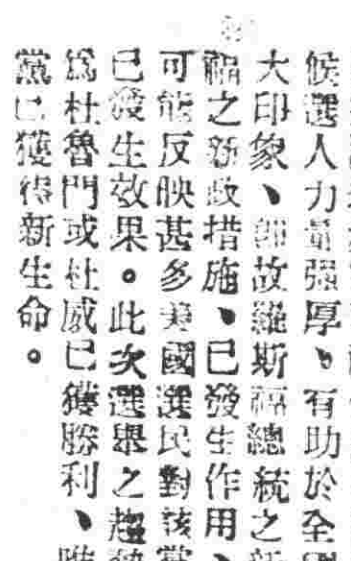 候選人力量强厚、有助於全國
大印象、即故羅斯福總統之新
福之新政措施、已發生作用、
可能反映甚多美國選民對該黨
已發生效果。此次選舉之趨勢
爲杜魯門或杜威已獲勝利、
黨已獲得新生命。